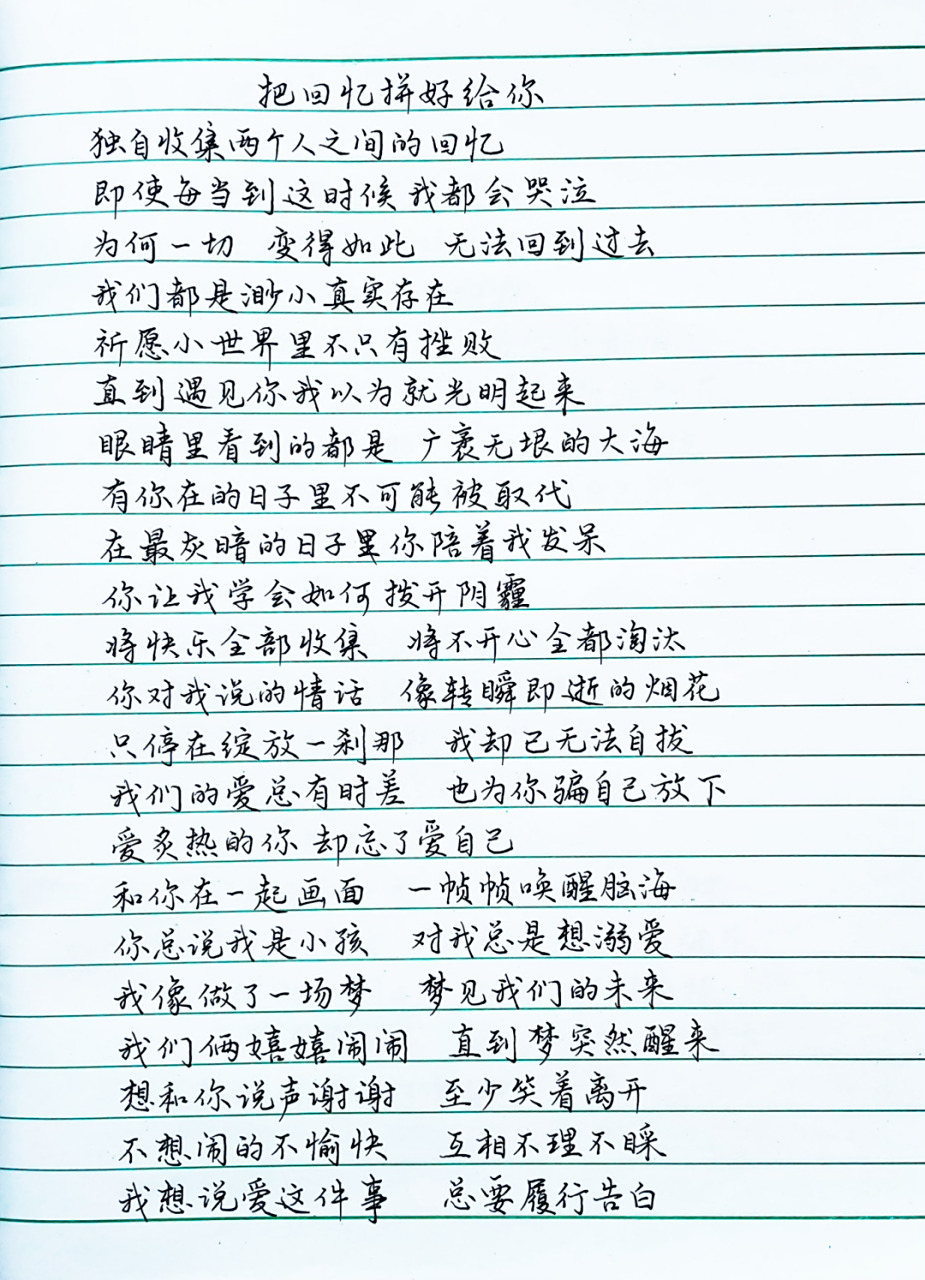 把回忆拼好给你
独自收集两个人之间的回忆
即使每当到这时候我都会哭泣
为何一切 变得如此 无法回到过去
我们都是渺小真实存在
祈愿小世界里不只有挫败
直到遇见你我以为就光明起来
眼睛里看到的都是 广袤无垠的大海
有你在的日子里不可能被取代
在最灰暗的日子里你陪着我发呆
你让我学会如何拨开阴霾
将快乐全部收集 将不开心全都淘汰
你对我说的情话 像转瞬即逝的烟花
只停在绽放一刹那 我却已无法自拔
我们的爱总有时差 也为你骗自己放下
爱炙热的你 却忘了爱自己
和你在一起画面 一帧帧唤醒脑海
你总说我是小孩 对我总是想溺爱
我像做了一场梦 梦见我们的未来
我们俩嬉嬉闹闹 直到梦突然醒来
想和你说声谢谢 至少笑着离开
不想闹的不愉快 互相不理不睬
我想说爱这件事 总要履行告白